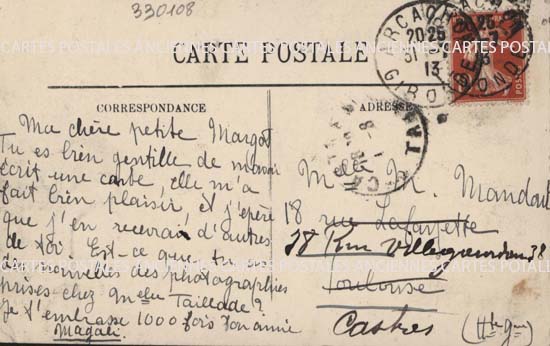 330108
CARTE POSTALE
CORRESPONDANCE
Ma chère petite Margot
Tu es bien gentille de m'avoir
écrit une carte, elle m'a
fait bien plaisir, et j'espère
que j'en recevrai d'autres
de toi. Est-ce que tu
as des nouvelles des photographies
prises chez Melle Taillade?
Je t'embrasse 1000 fois ton amie
Magali
ADRESSE
M. Mandoul
18 rue Lafayette
28 Rue Villegoudou 28
Toulouse
Castres
(Hte Gne)
ARCACHON
20 25
31 7
13
GIRONDE
CARTES POSTALES ANCIENNES CARTES POSTALES ANCIENNES CARTES POSTALES